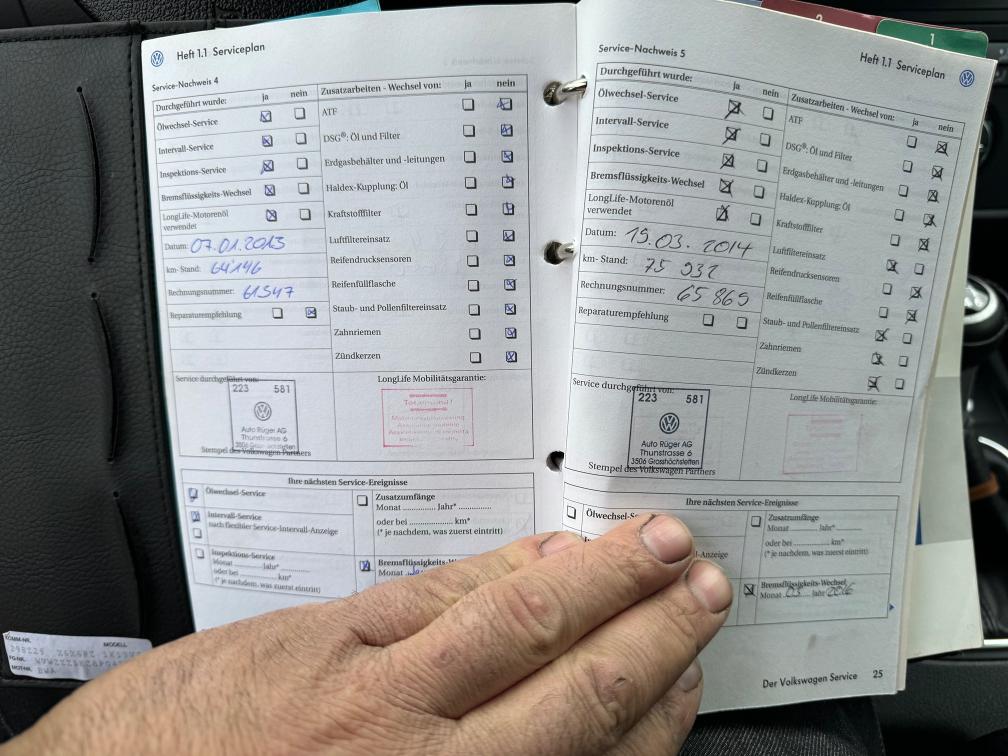 1
2
Heft 1.1 Serviceplan
Service-Nachweis 4
Durchgeführt wurde: ja nein
Ölwechsel-Service
Intervall-Service
Inspektions-Service
Bremsflüssigkeits-Wechsel
LongLife-Motorenöl
verwendet
Datum: 07.01.2013
km- Stand: 64'146
Rechnungsnummer: 61547
Reparaturempfehlung
Zusatzarbeiten - Wechsel von: ja nein
ATF
DSG®: Öl und Filter
Erdgasbehälter und -leitungen
Haldex-Kupplung: Öl
Kraftstofffilter
Luftfiltereinsatz
Reifendrucksensoren
Reifenfüllflasche
Staub- und Pollenfiltereinsatz
Zahnriemen
Zündkerzen
Service durchgeführt von:
223 581
Auto Rüger AG
Thunstrasse 6
3506 Grosshöchstetten
Stempel des Volkswagen Partners
LongLife Mobilitätsgarantie:
Ihre nächsten Service-Ereignisse
Ölwechsel-Service
Intervall-Service
nach flexibler Service-Intervall-Anzeige
Inspektions-Service
Monat Jahr*
oder bei km*
(* je nachdem, was zuerst eintritt)
Zusatzumfänge
Monat Jahr*
oder bei km*
(* je nachdem, was zuerst eintritt)
Monat
Service-Nachweis 5
Heft 1.1 Serviceplan
Durchgeführt wurde: ja nein
Ölwechsel-Service
Intervall-Service
Inspektions-Service
Bremsflüssigkeits-Wechsel
LongLife-Motorenöl
verwendet
Datum: 19.03.2014
km- Stand: 75 932
Rechnungsnummer: 65 869
Reparaturempfehlung
Zusatzarbeiten - Wechsel von: ja nein
ATF
DSG®: Öl und Filter
Erdgasbehälter und -leitungen
Haldex-Kupplung: Öl
Kraftstofffilter
Luftfiltereinsatz
Reifendrucksensoren
Reifenfüllflasche
Staub- und Pollenfiltereinsatz
Zahnriemen
Zündkerzen
Service durchgeführt von:
223 581
Auto Rüger AG
Thunstrasse 6
3506 Grosshöchstetten
Stempel des Volkswagen Partners
LongLife Mobilitätsgarantie:
Ihre nächsten Service-Ereignisse
Zusatzumfänge
Monat Jahr*
oder bei km*
(* je nachdem, was zuerst eintritt)
Bremsflüssigkeits-Wechsel
Monat 03 Jahr 2016
Der Volkswagen Service 25
KOMM-NR. MODELL